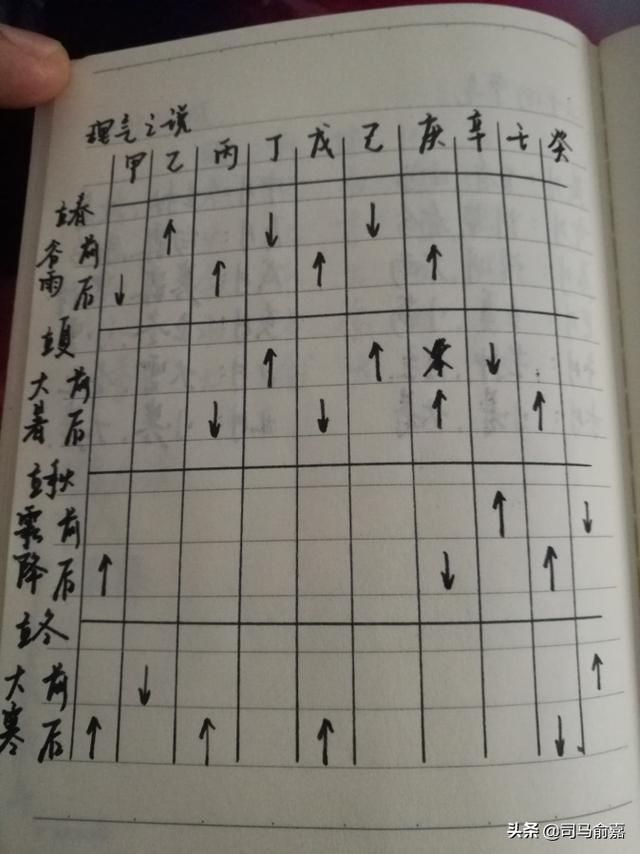 理气之说
甲 乙 丙 丁 戊 己 庚 辛 壬 癸
立春
谷 前 ↑ ↓ ↓
雨 后 ↓ ↑ ↑ ↑
立夏
大 前 ↑ ↑ ↓
暑 后 ↓ ↓ ↑ ↑
立秋
霜 前 ↑ ↓
降 后 ↑ ↓ ↑
立冬
大 前 ↓ ↑
寒 后 ↑ ↑ ↑ ↓
头条 @司马俞嘉